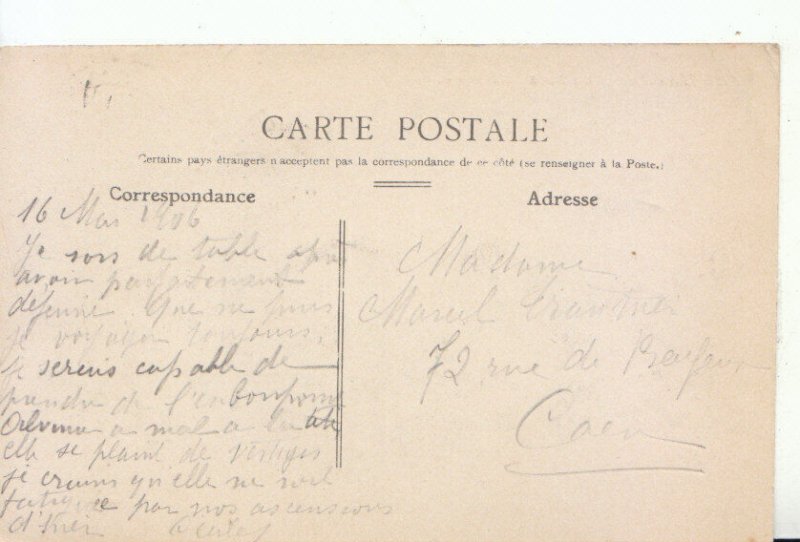 CARTE POSTALE
Certains pays étrangers n'acceptent pas la correspondance de ce côté (se renseigner à la Poste.)
Correspondance
16 Mai 1906
Je sors de table après
avoir parfaitement
déjeuné. Que ne puis
je voyager toujours,
je serais capable de
prendre de l'embonpoint
a mal a la tête
elle se plaint de vertiges
je crains qu'elle ne soit
fatiguée par nos ascensions
d'hier
Adresse
Madame
Marcel
72 rue de Bayeux
Caen